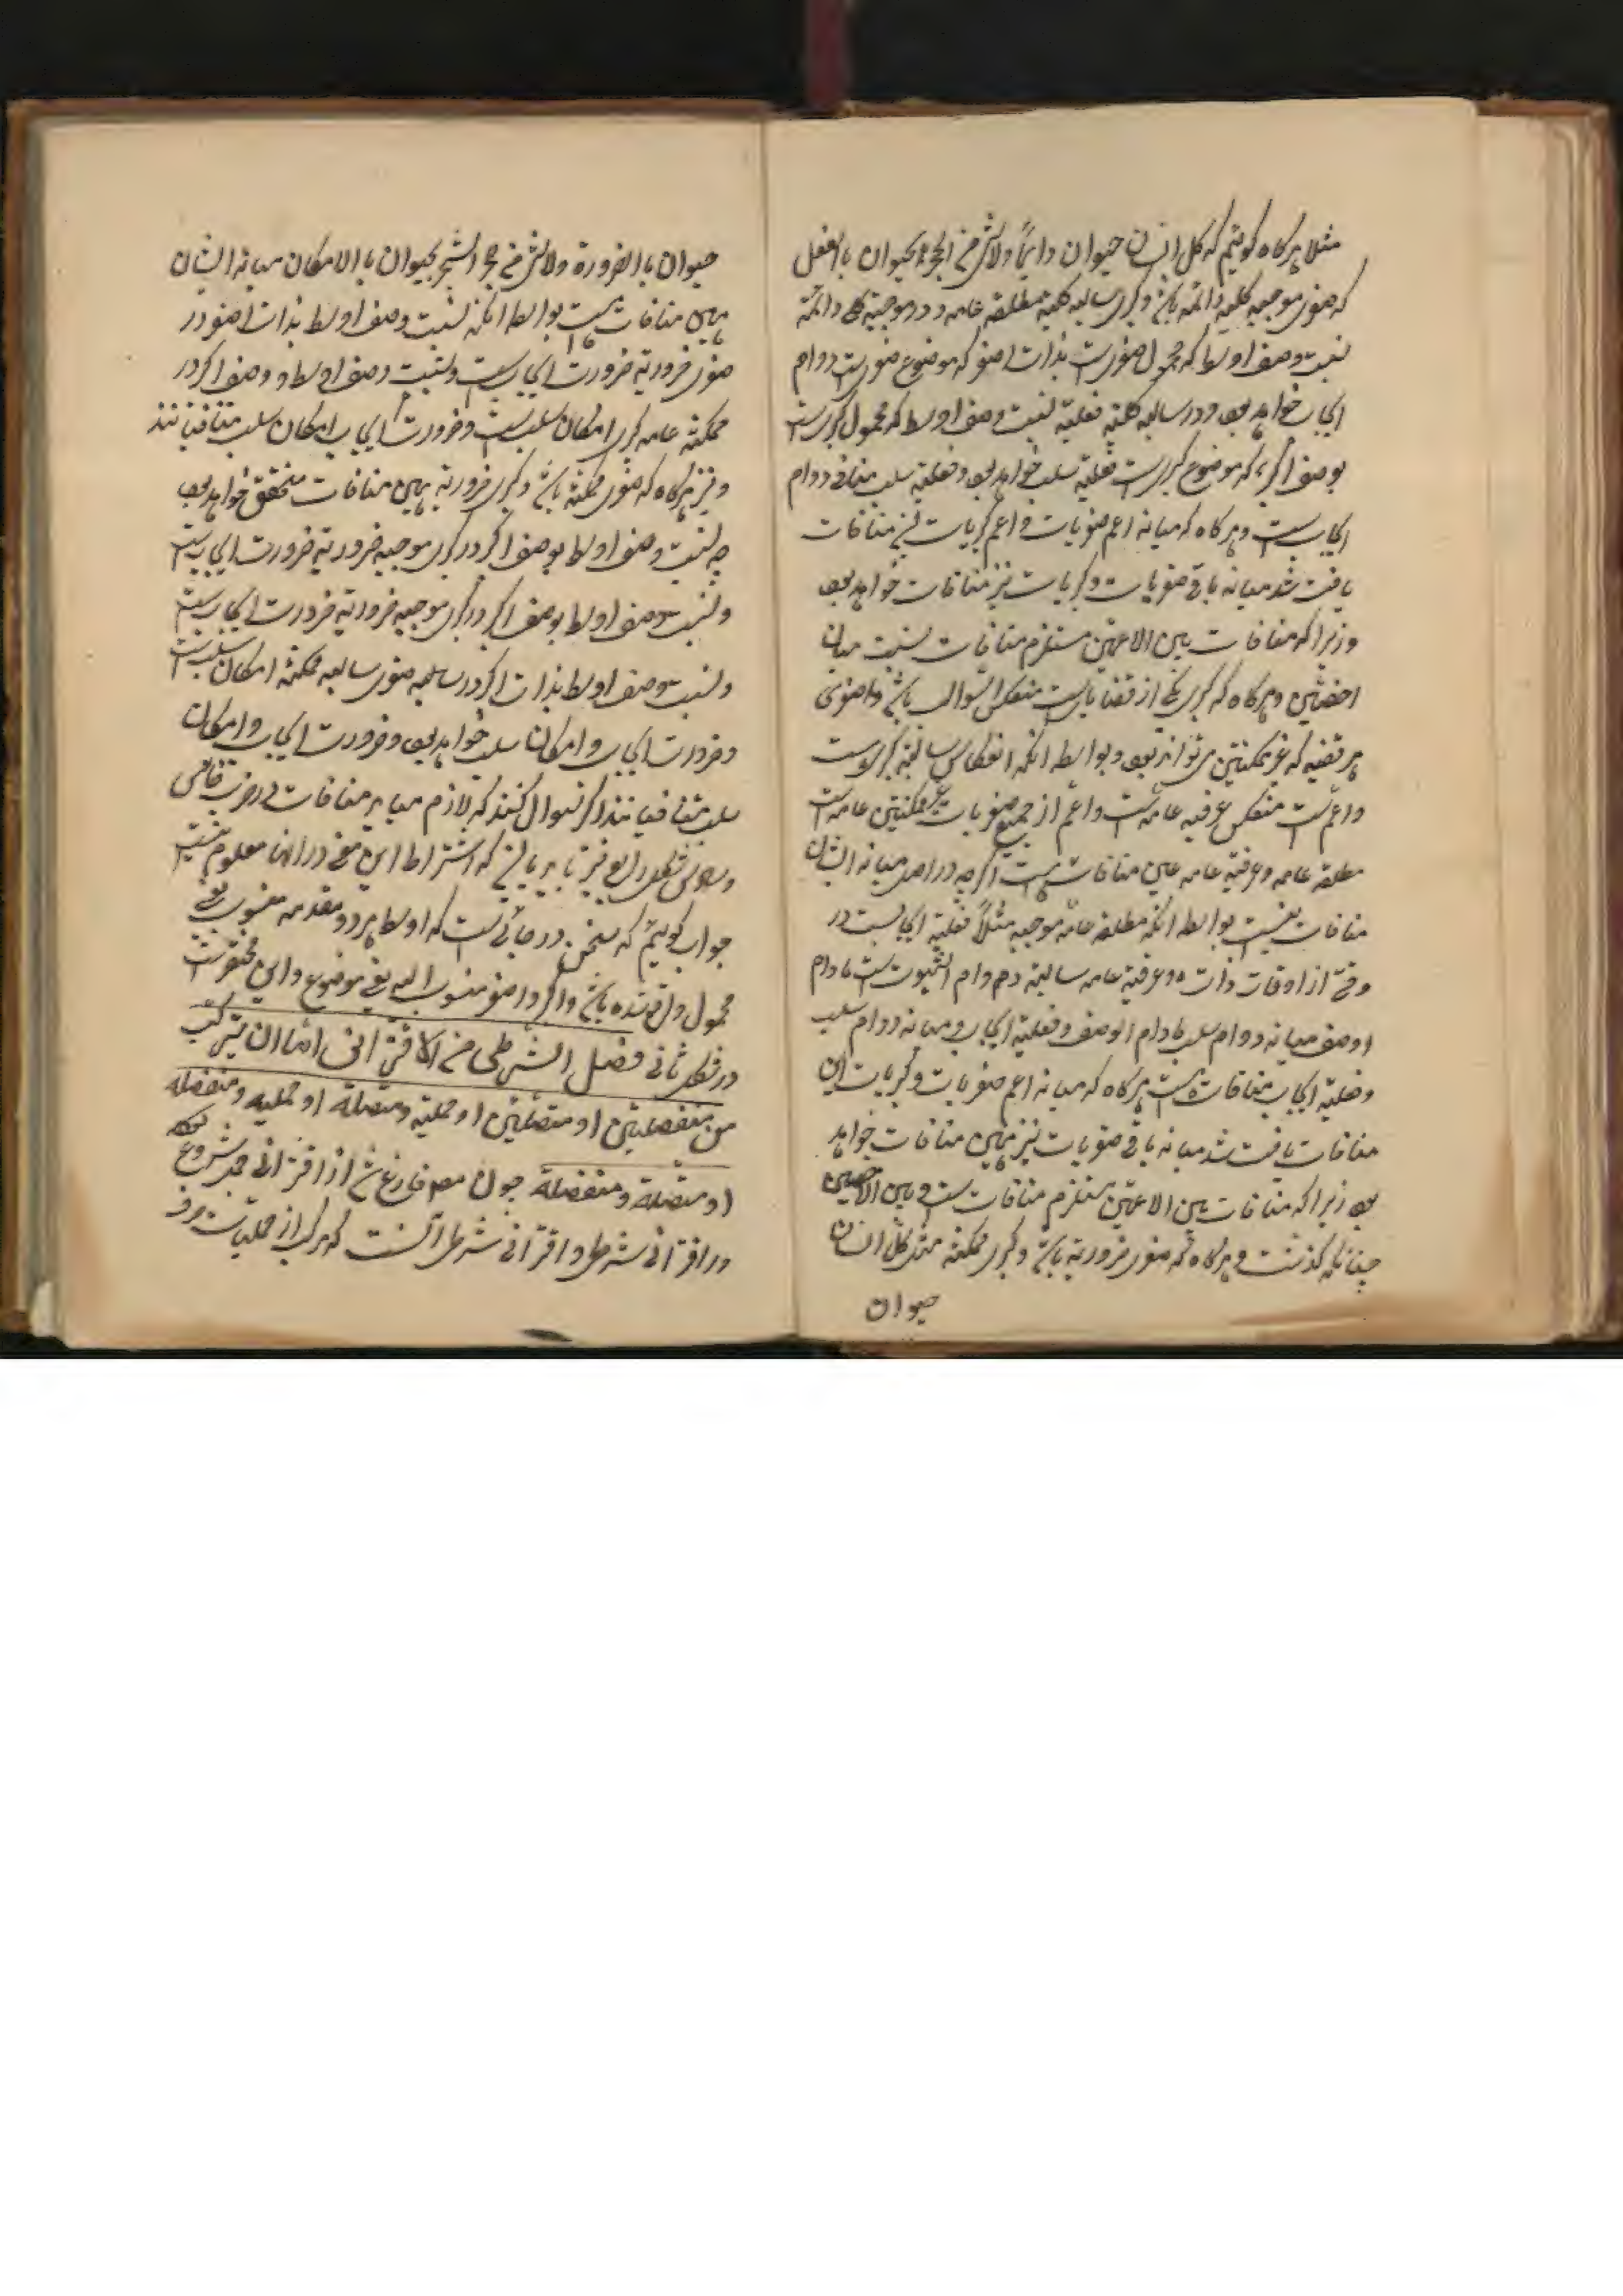 مثلا هرکاه کوئیم که کل انسان حیوان دایماً ولا شئ من الحجر بحیوان بالفعل
که صغری موجبه کلیه دائمه باشد و کبری سالبه کلیة مطلقه عامه و در موجبة کلی دائمة
نسبت وصف اوسط که محمول صغری است بذات اصغر که موضوع صغری است دوام
ایجاب خواهد بود و در سالبه کلیه فعلیة نسبت وصف اوسط که محمول کبری است
بوصف اکبر که موضوع کبری است فعلیة سلب خواهد بود و فعلیة سلب منافی دوام
ایجاب است و هرکاه که میانه اعم صغریات و اعم کبریات این منافات
یافت شد میانه باقی صغریات و کبریات نیز منافات خواهد بود
زیرا که منافات بین الاعمین مستلزم منافات نسبت میان
اخصین و هرکاه که کبری یکی از قضایای منعکس السوالب باشد و صغری
هر قضیه که غیر ممکنتین می تواند بود بواسطه انکه انعکاس سالبة کبری است
و اعم منعکس عرفیه عامه است و اعم از جمیع صغریات غیر ممکنتین عامه است
مطلقه عامه و عرفیة عامه منافات هست اکرچه در اصل میانه ایشان
منافات نیست بواسطه انکه مطلقه عامه موجبه مثلاً فعلیة ایجابست در
وقتی از اوقات ذات و عرفیة عامه سالبة دوام است مادام
الوصف میانه دوام سلب مادام الوصف و فعلیة ایجاب و میانه دوام سلب
و فعلیة ایجاب منافات هست هرکاه که میانه اعم صغریات و کبریات این
منافات یافت شد میانه باقی صغریات نیز همین منافات خواهد
بود زیرا که منافات بین الاعمین مستلزم منافات است و بین الاخصین
چنانکه کذشت و هرکاه که صغری ضروریة باشد و کبری ممکنه مثل کل انسان
حیوان
حیوان بالضرورة ولا شئ من الشجر بحیوان بالامکان میانه ایشان
همین منافات هست بواسطه انکه نسبت وصف اوسط بذات اصغر در
صغری ضروریة ضرورت ایجاب است و نسبت وصف اوسط و وصف اکبر در
ممکنه عامه کبری امکان سلب است و ضرورت ایجاب و امکان سلب متنافیانند
و نیز هرکاه که صغری ممکنه باشد و کبری ضروریه همین منافات متحقق خواهد بود
چه نسبت وصف اوسط بوصف اکبر در کبری موجبه ضروریة ضرورت ایجاب است
و نسبت وصف اوسط بوصف اکبر در کبری موجبه ضروریة ضرورت ایجاب است
و نسبت وصف اوسط بذات اکبر در صغری سالبه ممکنة امکان سلب است
و ضرورت ایجاب و امکان سلب خواهد بود و ضرورت ایجاب و امکان
سلب متنافیانند اکر سوال کنند که لازم منافات در ضرب خامس
و سادس شکل رابع نیز باید که اشتراط این معنی در انها معلوم نیست
جواب کوئیم که سخن در جائی است که اوسط هر دو مقدمه منسوب یعنی
محمول واقع شده باشد و اکبر و اصغر منسوب الیه یعنی موضوع و این مختص است
در شکل ثانی فصل الشرطی من الاقترانی اما ان یترکب
من منفصلتین او متصلتین او حملیة و متصلة او حملیه و منفصله
او متصلة و منفصلة چون مصه فارغ شد از اقترانی حملی شروع نمود
در اقترانی شرطی و اقترانی شرطی آنست که مرکب از حملیات صرف